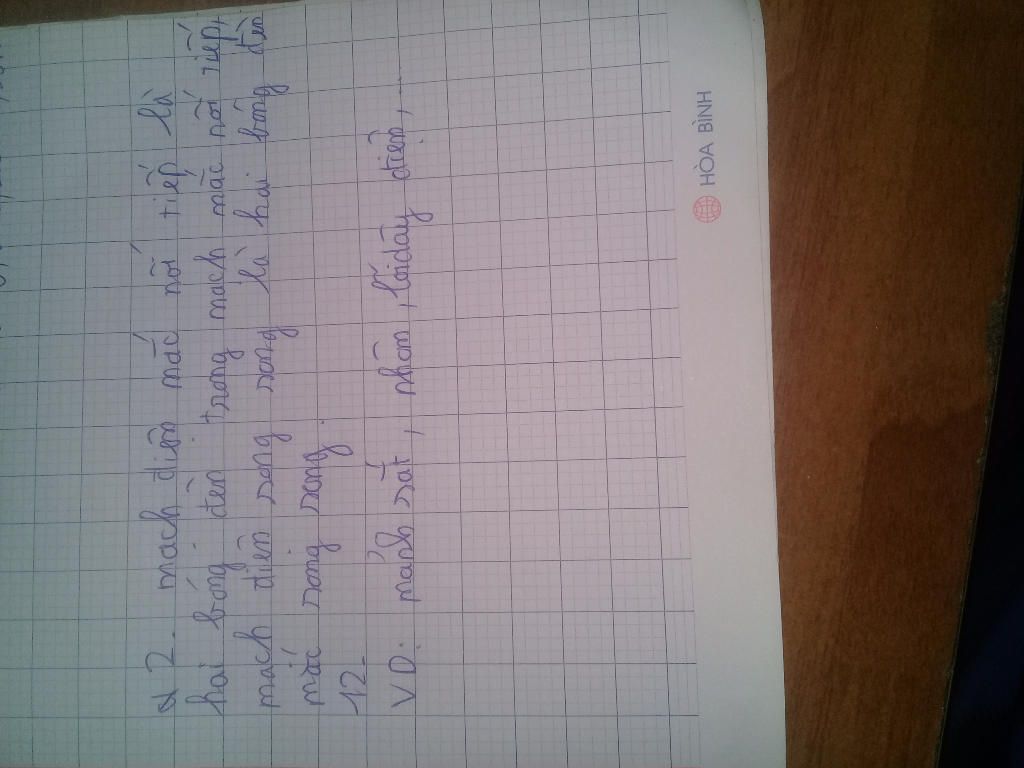 2. mạch điện mắc nối tiếp là
hai bóng đèn trong mạch mắc nối tiếp,
mạch điện song song là hai bóng đèn
mắc song song.
12.
VD: mảnh sắt, nhôm, lõi dây điện,...
HÒA BÌNH